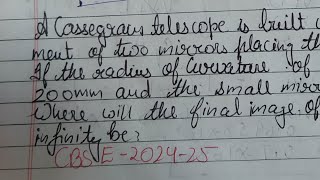 A Cassegrain telescope is built
ment of two mirrors placing th
If the radius of Curvature of
200mm and the small mirr
Where will the final image of
infinity be?
CBSE-2024-25